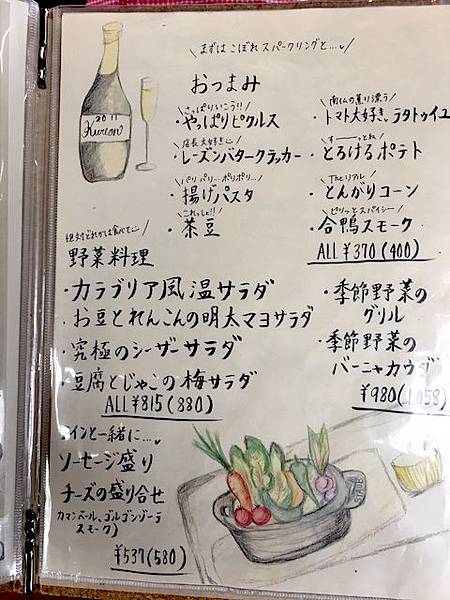 まずはこぼれスパークリングと…
2011
Kurion
おつまみ
さっぱりいこう!!
・やっぱりピクルス
店長大好き
・レーズンバタークラッカー
パリパリ…ポリポリ…
・揚げパスタ
これっしょ!!
・茶豆
南仏の薫り漂う
・トマト大好き、ラタトゥイユ
すーーっとね
・とろけるポテト
Theリアル
・とんがりコーン
ピリッとスパイシー
・合鴨スモーク
ALL ¥370(400)
絶対どれかは食べて
野菜料理
・カラブリア風温サラダ
・お豆とれんこんの明太マヨサラダ
・究極のシーザーサラダ
・豆腐とじゃこの梅サラダ
ALL ¥815(880)
・季節野菜の
グリル
・季節野菜の
バーニャカウダ
¥980(1,058)
ワインと一緒に…
ソーセージ盛り
チーズの盛り合せ
カマンベール、ゴルゴンゾーラ
スモーク)
¥537(580)
STAUB